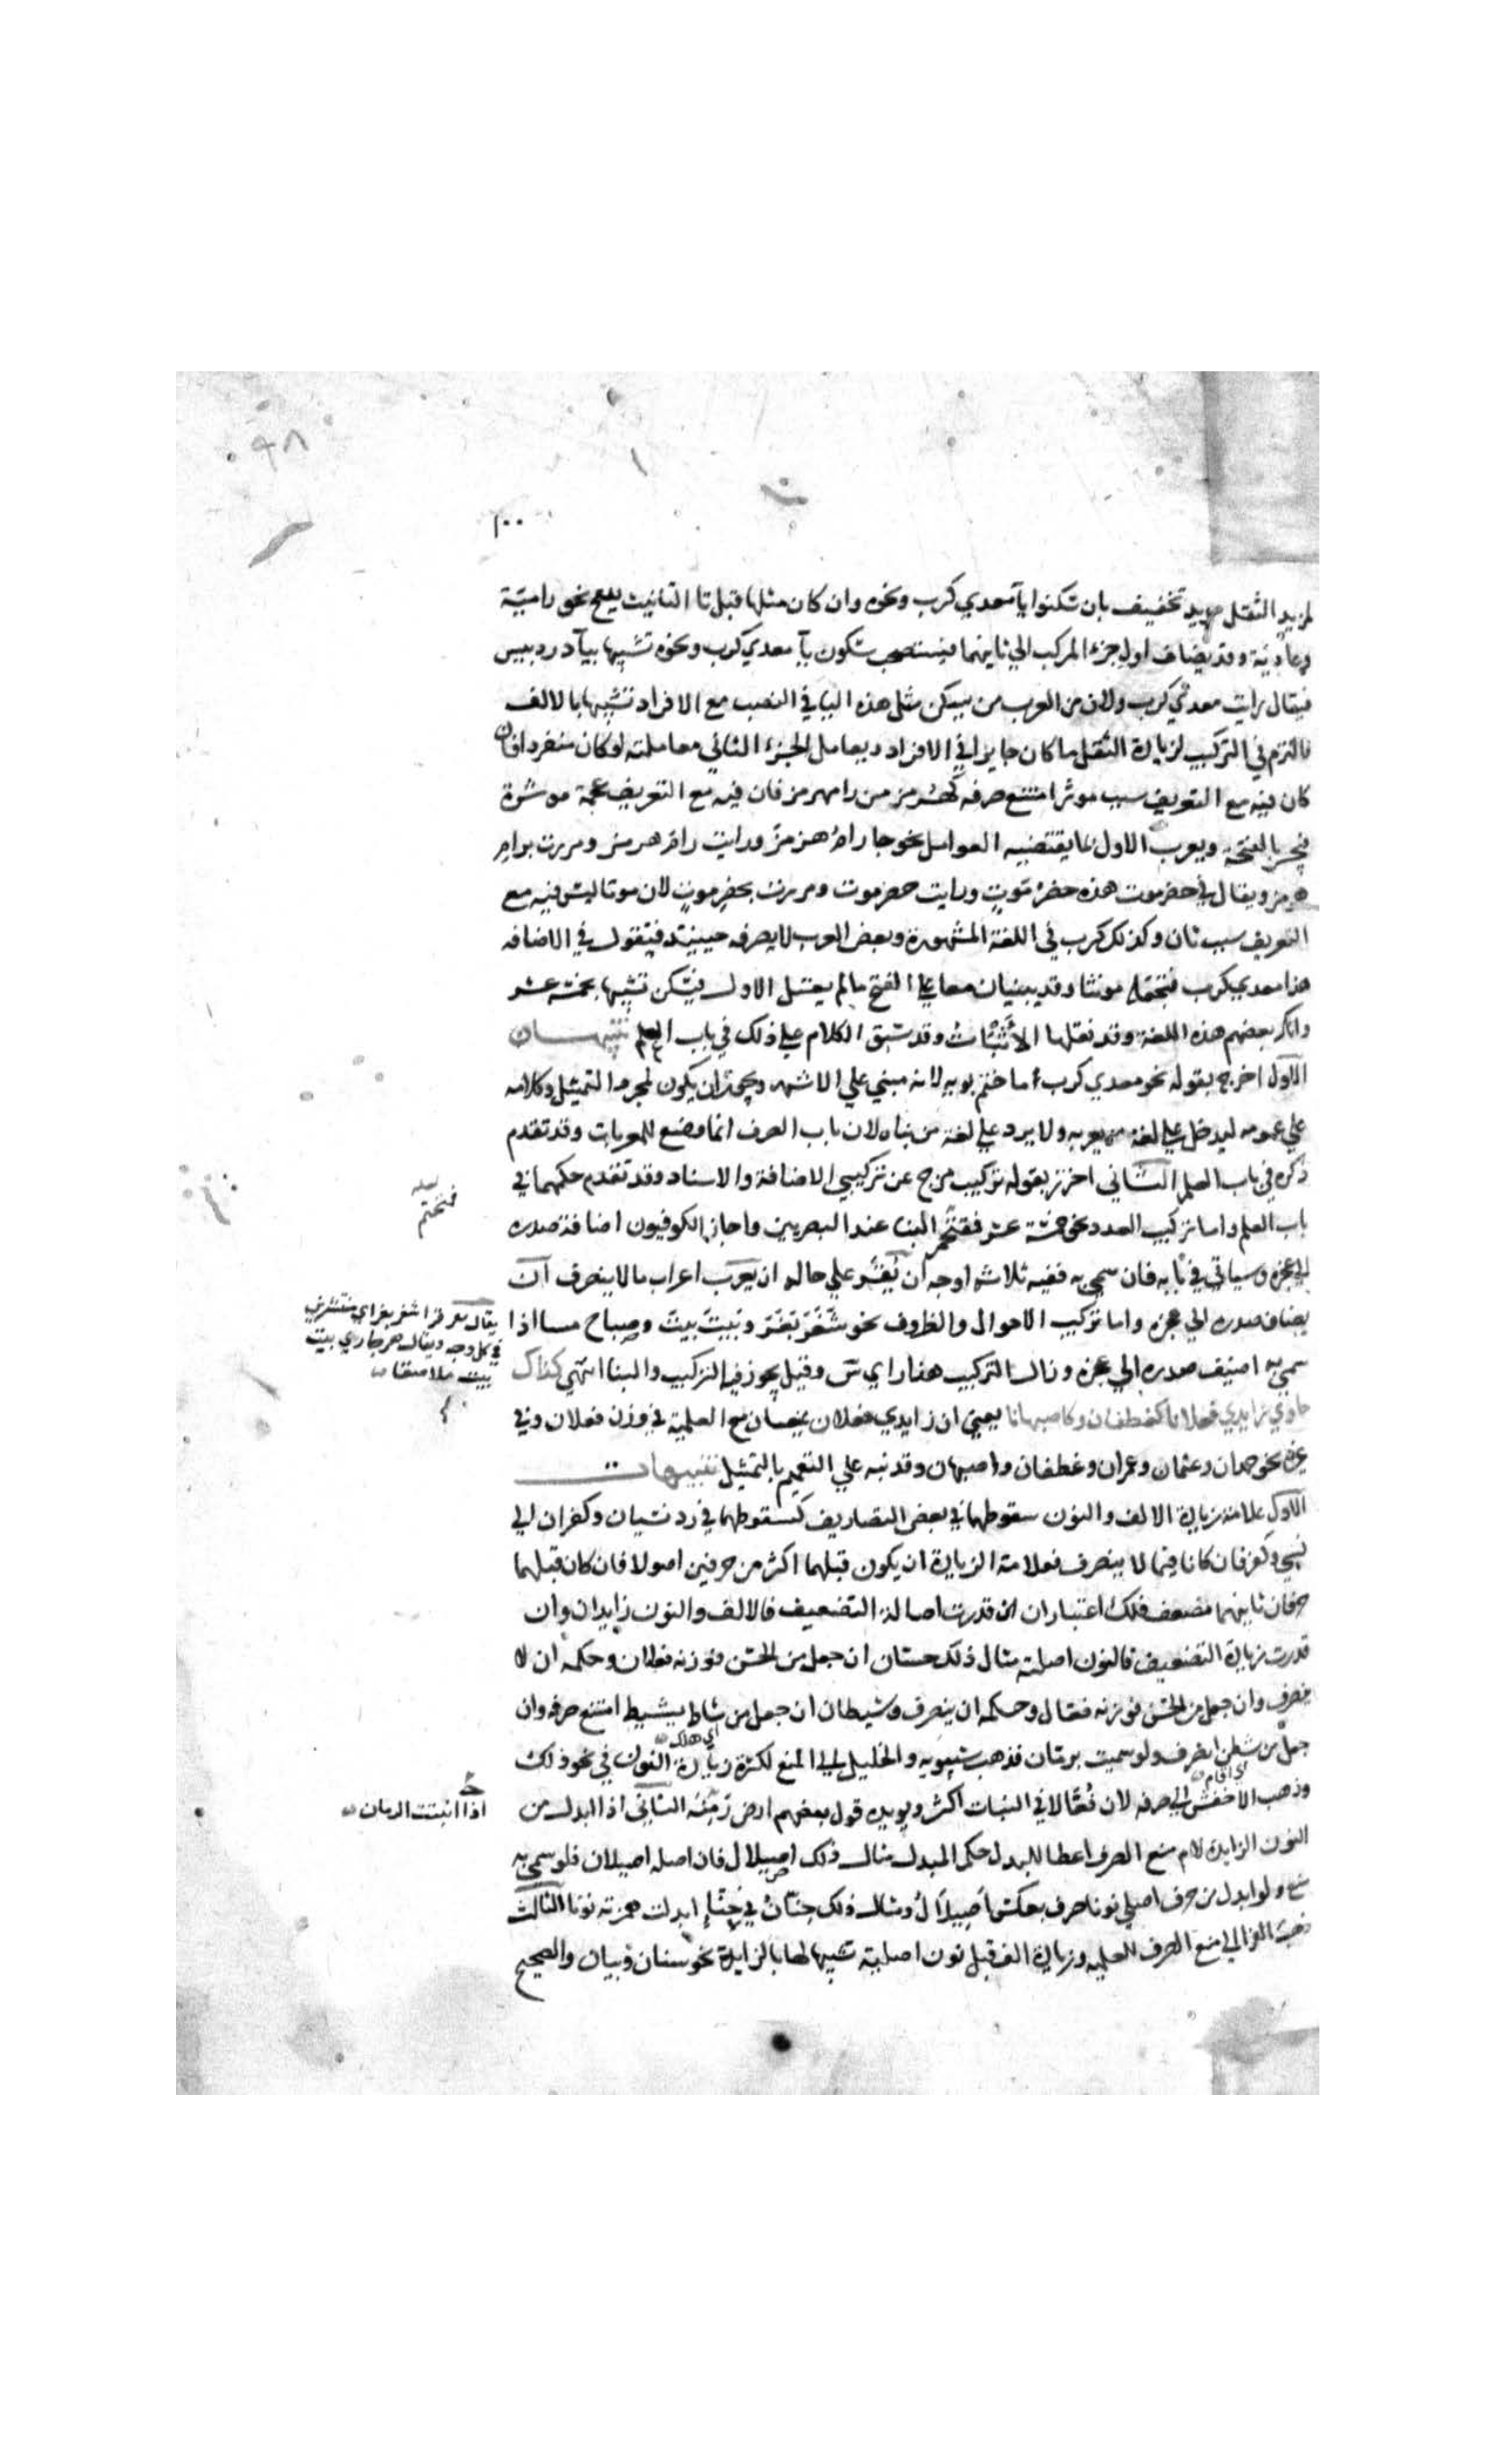 ١٠٠
لمزيد الثقل مزيد تخفيف بان سكنوا يآ معدي كرب ونحوه وان كان مثلها قبل تا التانيث يفتح نحو رامية
وعادية وقد يضاف اول جزء المركب الي ثانيهما فيستصحب سكون يآ معدي كرب ونحوه تشبيها بيآ دردبيس
فيقال رايت معدي كرب ولان من العرب من يسكن مثل هذه اليا في النصب مع الافراد تشبيها بالالف
فالتزم في التركيب لزيادة الثقل ما كان جايزا في الافراد ويعامل الجزء الثاني معاملته لو كان منفردا فان
كان فيه مع التعريف سبب موثر امتنع صرفه كهرمز من رامهرمز فان فيه مع التعريف عجمة موثرة
فيجر بالفتحة ويعرب الاول بما يقتضيه العوامل نحو جا رامُ هرمزَ ورايت رامَ هرمز ومررت برامِ
هرمز ويقال في حضرموت هذه حضرُ موتٍ ورايت حضرموت ومررت بحضرِ موتٍ لان موتا ليس فيه مع
التعريف سبب ثان وكذلك كرب في اللغة المشهورة وبعض العرب لا يصرفه حينيئذ فيقول في الاضافه
هذا معدي كرب فيجعله مونثا وقد يبنيان معا علي الفتح ما لم يعتل الاول فيسكن تشبيها بخمسة عشر
وانكر بعضهم هذه اللغة وقد نقلها الأَثْبَاتُ وقد سبق الكلام علي ذلك في باب العلم تنبيهــان
الاول اخرج بقوله نحو معدي كرب ما ختم بويه لانه مبني علي الاشهر ويجوز ان يكون لمجرد التمثيل وكلامه
علي عمومه ليدخل علي لغة من يعربه ولا يرد علي لغة من بناه لان باب الصرف انما وضع للمعربات وقد تقدم
ذكره في باب العلم الثاني احترز بقوله تركيب مزج عن تركيبي الاضافة والاسناد وقد تقدم حكمهما في
باب العلم واما تركيب العدد نحو خمسة عشر فمتحتم البنا عند البصريين واجاز الكوفيون اضافة صدره
الي عجزه وسياتي في بابه فان سمي به ففيه ثلاثه اوجه ان يُقَرَّ علي حاله ان يعرب اعراب ما لا ينصرف ان
يضاف صدره الي عجزه واما تركيب الاحوال والظروف نحو شَغَرَ بَغَرَ وبَيتَ بَيتَ وصباح مسا اذا
سمي به اضيف صدره الي عجزه وزال التركيب هذا راي س وقيل يجوز فيه التركيب والبنا انتهي كذاك
حاوي زايدي فعلانا كغطفان وكاصبهانا يعني ان زايدي فعلان يمنعان مع العلمية في وزن فعلان وفي
غيره نحو حمدان وعثمان وعمران وغطفان واصبهان وقد نبه علي التعميم بالتمثيل تنبيهات
الاول علامة زيادة الالف والنون سقوطهما في بعض التصاريف كسقوطهما في رد نسيان وكفران الي
نسي وكفر فان كانا فيما لا ينصرف فعلامة الزيادة ان يكون قبلهما اكثر من حرفين اصولا فان كان قبلهما
حرفان ثانيهما مضعف فلك اعتباران ان قدرت اصالة التضعيف فالالف والنون زايدان وان
قدرت زيادة التضعيف فالنون اصلية مثال ذلك حسان ان جعل من الحسّ فوزنه فعلان وحكمه ان لا
ينصرف وان جعل من الحسن فوزنه فعّال وحكمه ان ينصرف وشيطان ان جعل من شاط يشيط امتنع صرفه وان
اي هلك
جعل من شطن انصرف ولو سميت برمّان فذهب سيبويه والخليل الي المنع لكثرة زيادة النون في نحو ذلك
اي اقام
وذهب الاخفش الي صرفه لان فُعّالا في النبات اكثر ويويده قول بعضهم ارض رَمِنَة الثاني اذا ابدل من
النون الزايدة لام منع الصرف اعطا للبدل حكم المبدل مثال ذلك اصيلال فان اصله اصيلان فلو سمي به
منع ولو ابدل من حرف اصلي نونا صرف بعكس اصيلال ومثال ذلك حِنّان في حِنّاء ابدلت همزته نونا الثالث
ذهب الفرا الي منع الصرف للعلميه وزيادة الف قبل نون اصلية تشبيها لها بالزايدة نحو سنان وبيان والصحيح
لعله
فمتحتم
يقال تفرقوا شغر بغر اي منتشرين
في كل وجه ويقال هو جاري بيت
بيت ملاصقا
اذا انبتت الرمان